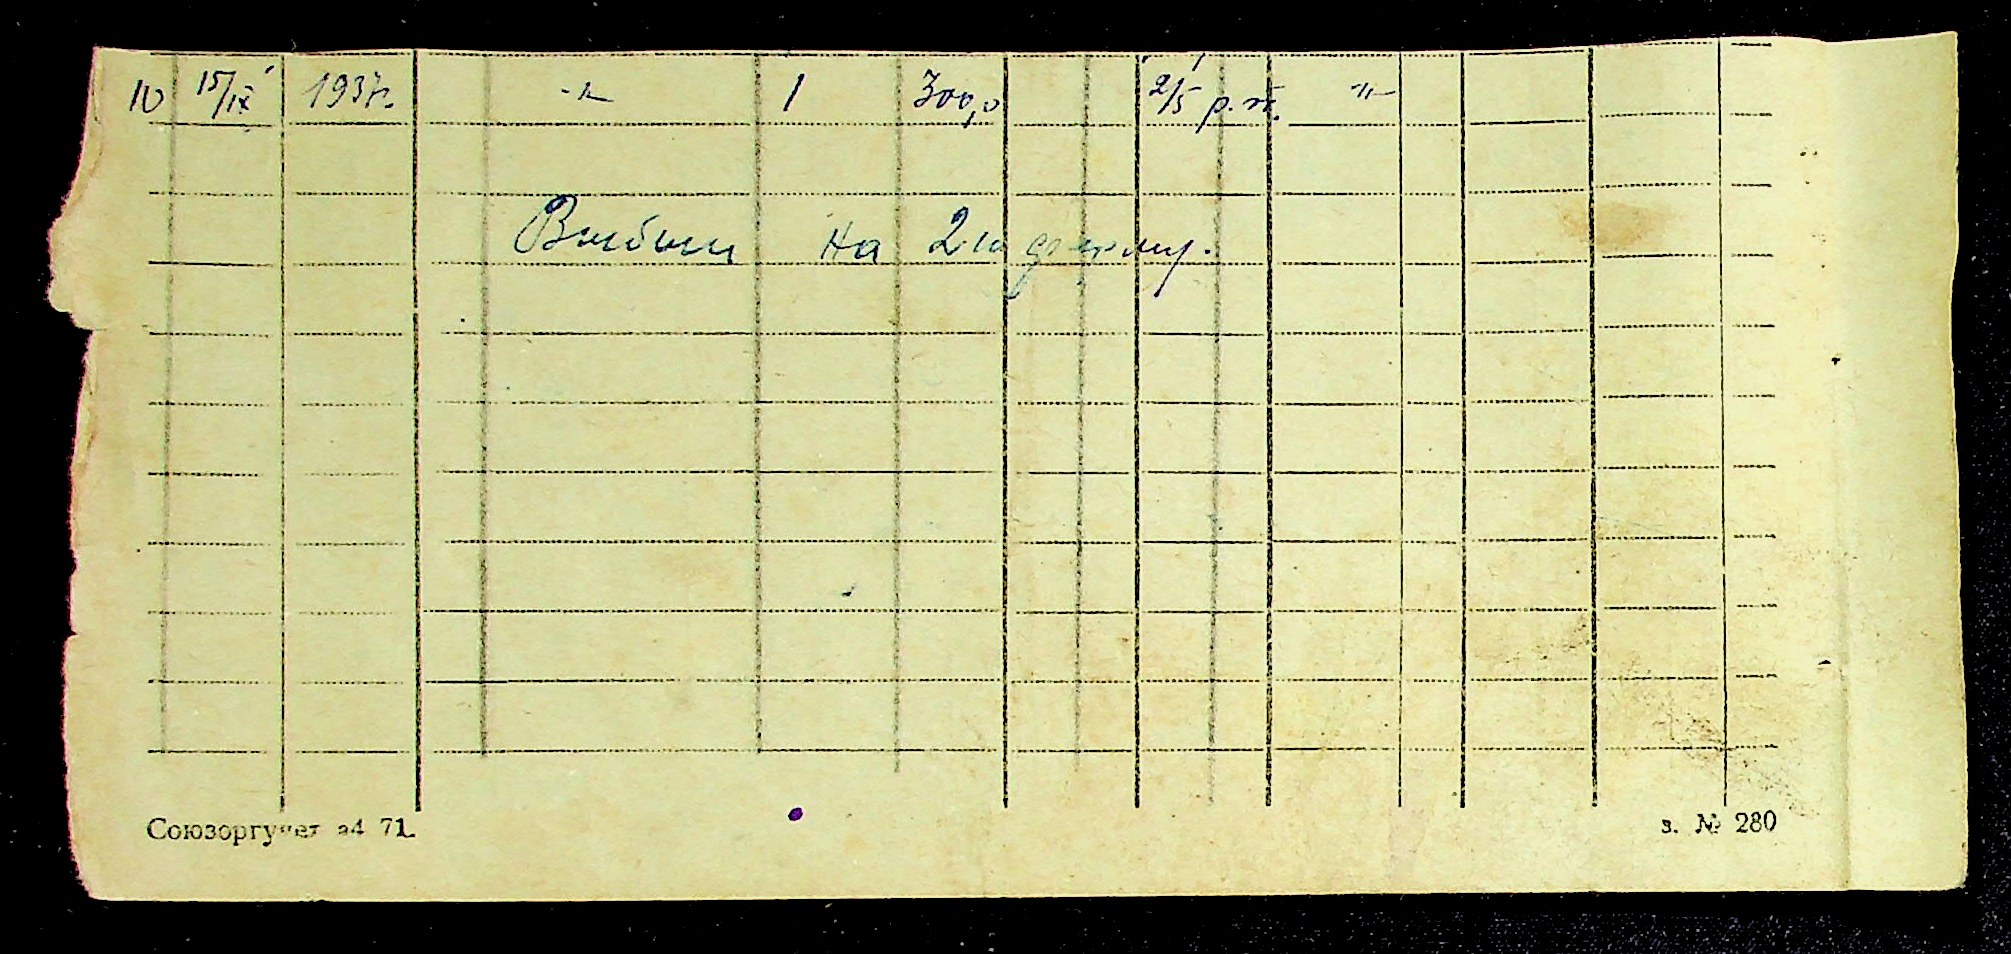 10 15/IX 1937г. -"- 1 300,0 2/5 р.т. -"-
Выбыли на 2ю ферму.
Союзоргучет а4 71. з. № 280